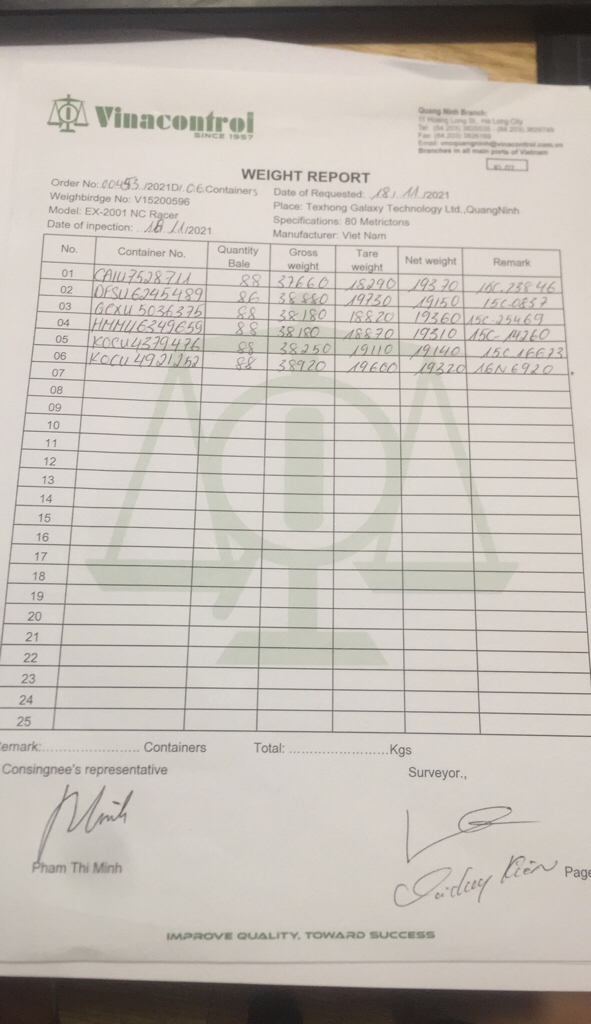 Vinacontrol
SINCE 1957
Quang Ninh Branch:
Branches in all main ports of Vietnam
WEIGHT REPORT
Order No: 00453 /2021D/. 06 Containers
Date of Requested: 18/ 11 /2021
Weighbirdge No: V15200596
Place: Texhong Galaxy Technology Ltd.,QuangNinh
Model: EX-2001 NC Racer
Specifications: 80 Metrictons
Date of inpection: 18 11/2021
Manufacturer: Viet Nam
No. Container No. Quantity Bale Gross weight Tare weight Net weight Remark
01 CAIU7528711 88 37660 18290 19370 16C.23846
02 DFSU6245489 86 38880 19730 19150 15C.0837
03 GCXU 5036375 88 38180 18820 19360 15C-25469
04 HMMU6349659 88 38180 18870 19310 15C-14260
05 KOCU4379476 88 38250 19110 19140 15C 16673
06 KOCU 4921252 88 38920 19600 19320 16N 6920
07
08
09
10
11
12
13
14
15
16
17
18
19
20
21
22
23
24
25
emark:........................ Containers Total: ........................Kgs
Consingnee's representative Surveyor.,
Minh
Pham Thi Minh
Page
IMPROVE QUALITY, TOWARD SUCCESS